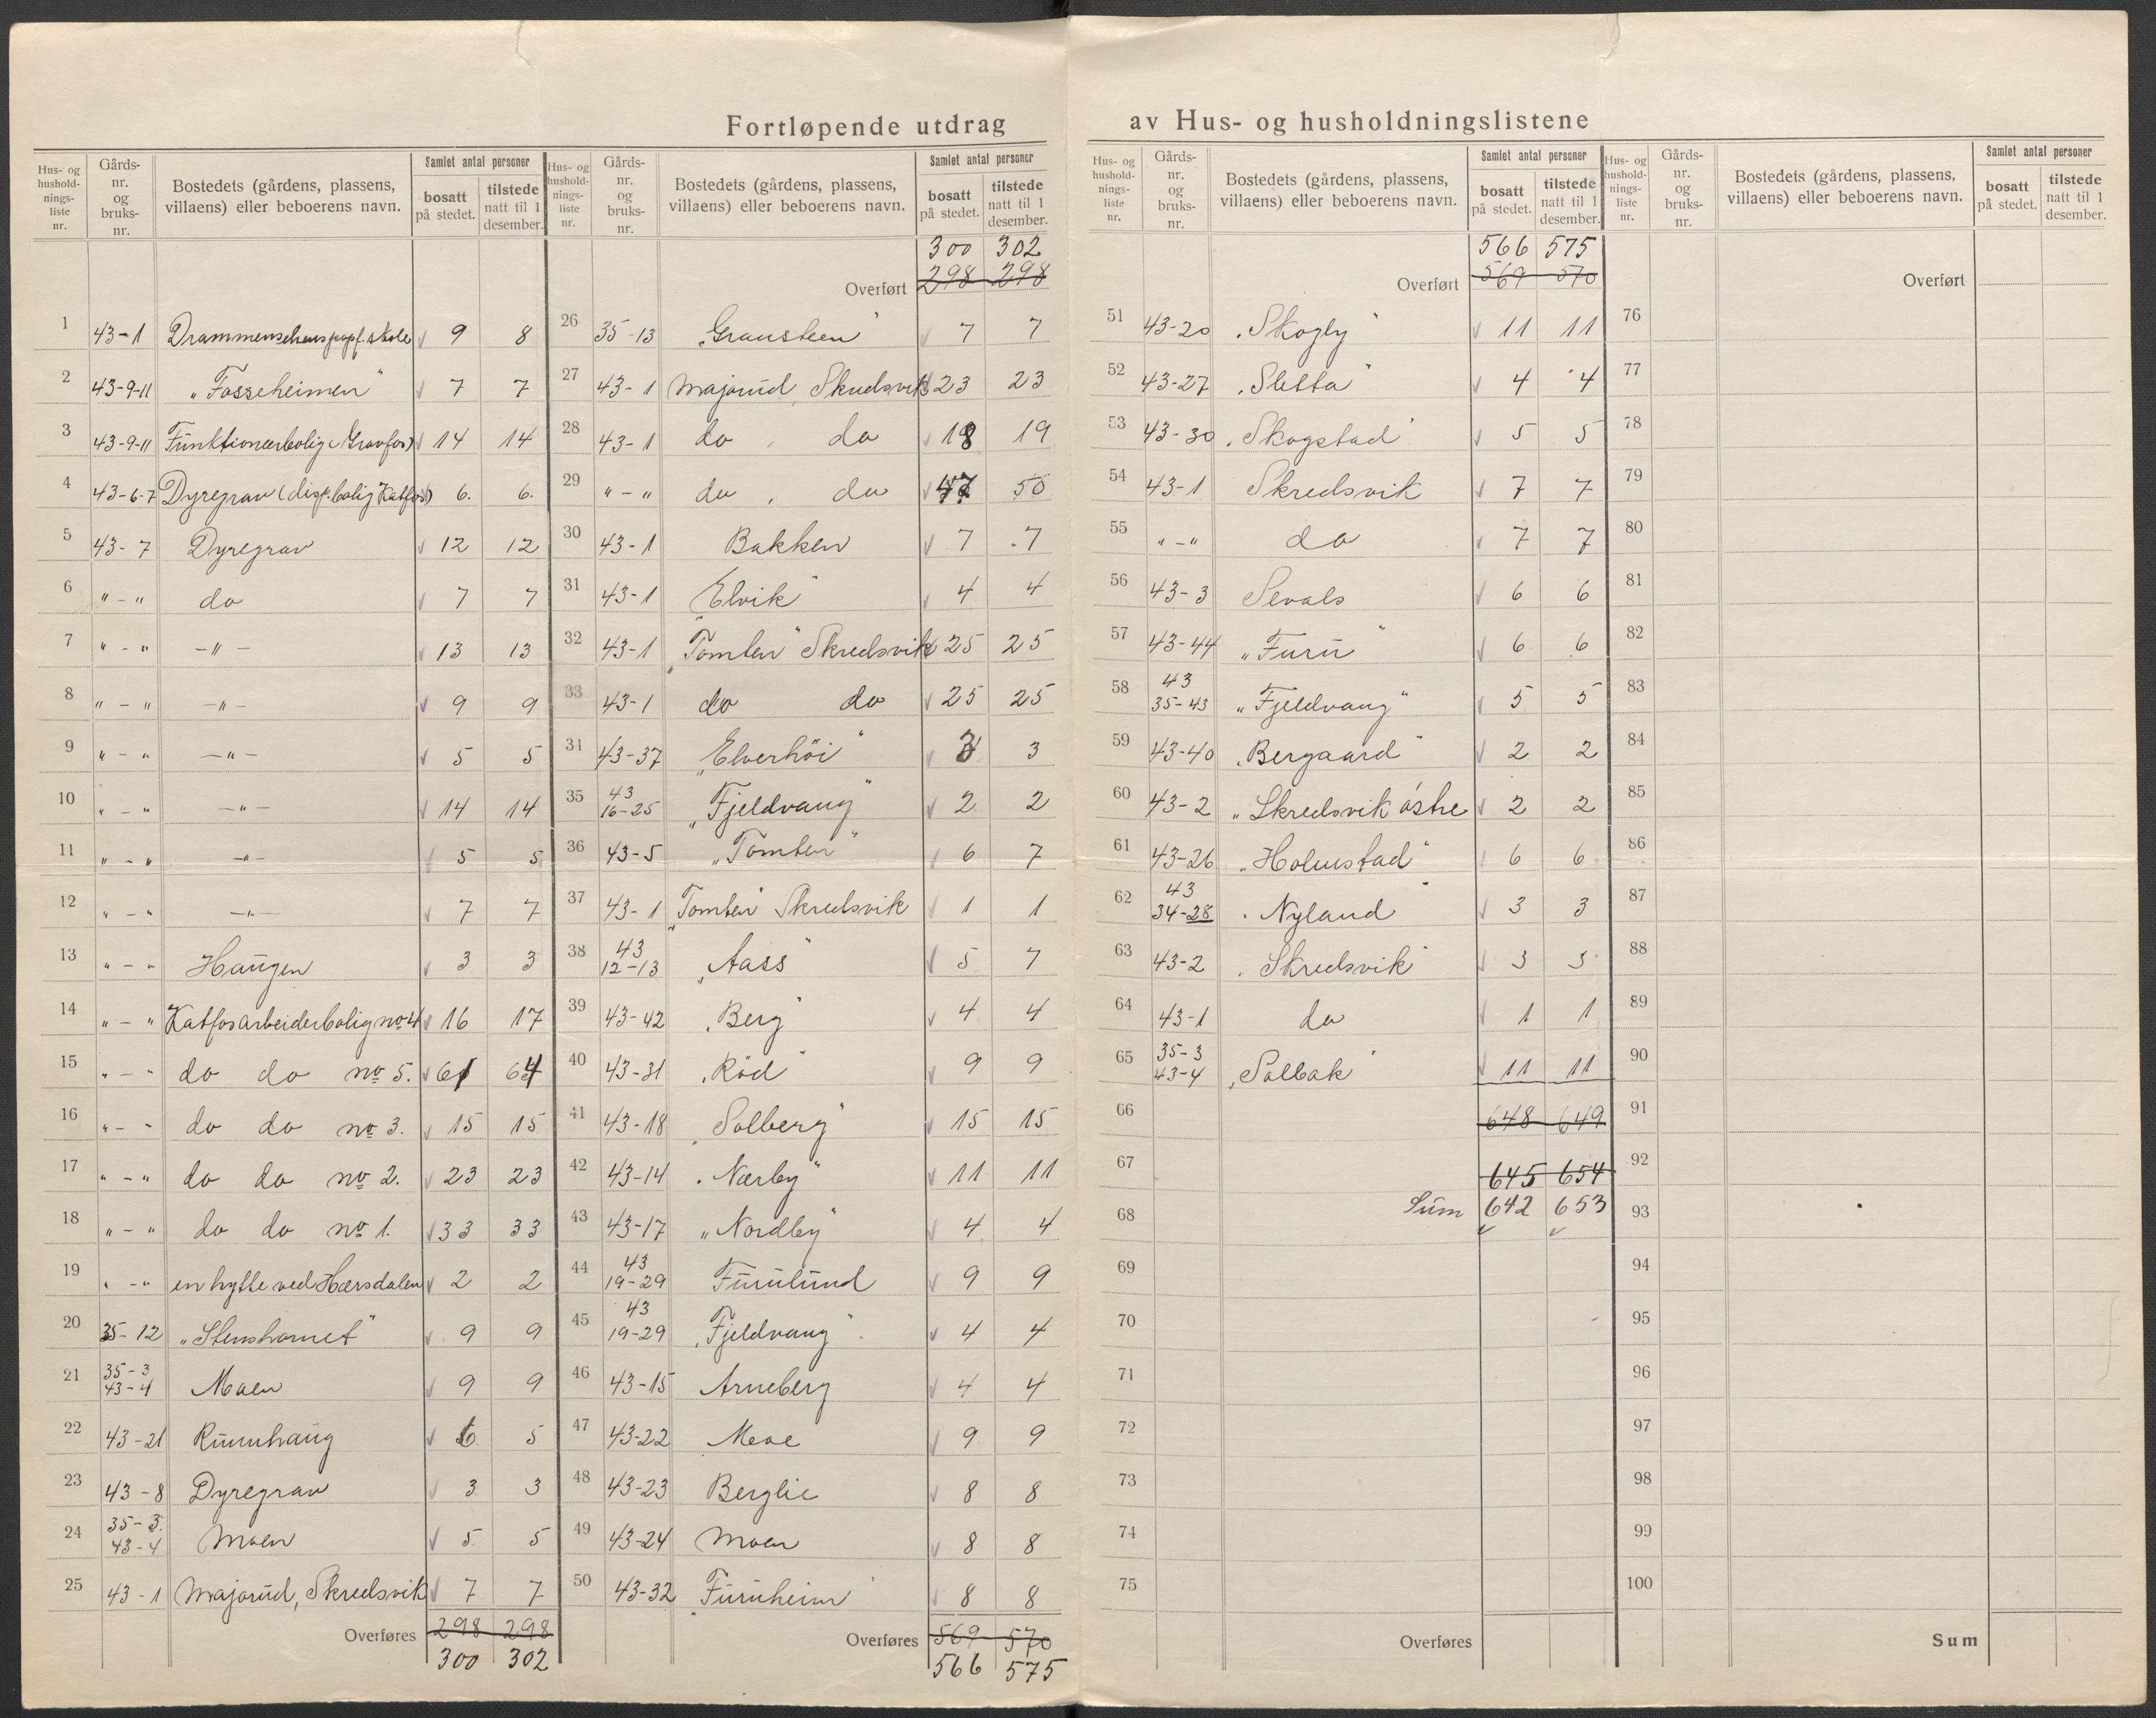 Fortløpende utdrag av Hus- og husholdningslistene
Hus- og husholdnings- liste nr. | Gårds- nr. og bruks- nr. | Bostedets (gårdens, plassens, villaens) eller beboerens navn. | Samlet antal personer | bosatt på stedet. | tilstede natt til 1 desember.
1 43-1 9 8
2 43-9-11 „Fosseheimen" 7 7
3 43-9-11 Funktionærbolig (Gravfos) 14 14
4 43-6-7 Dyregrav (disp. bolig Katfos) 6. 6.
5 43-7 Dyregrav 12 12
6 " - " do 7 7
7 " - " - " - 13 13
8 " - " - " - 9 9
9 " - " - " - 5 5
10 " - " - " - 14 14
11 " - " - " - 5 5
12 " - " - " - 7 7
13 " - " Haugen 3 3
14 " - " Katfos arbeiderbolig no 4 16 17
15 " - " do do no 5. 61 64
16 " - " do do no 3. 15 15
17 " - " do do no 2. 23 23
18 " - " do do no 1. 33 33
19 " - " en hytte ved Hærsdalen 2 2
20 35-12 9 9
21 35-3 43-4 Moen 9 9
22 43-21 Ruunhaug 6 5
23 43-8 Dyregrav 3 3
24 35-3. 43-4 Moen 5 5
25 43-1 Majorud, Skredsvik 7 7
Overføres 298 298
300 302
Hus- og husholdnings- liste nr. | Gårds- nr. og bruks- nr. | Bostedets (gårdens, plassens, villaens) eller beboerens navn. | Samlet antal personer | bosatt på stedet. | tilstede natt til 1 desember.
300 302
Overført 298 298
26 35-13 „Gransteen" 7 7
27 43-1 Majorud, Skredsvik 23 23
28 43-1 do, do 18 19
29 " - " do, do 47 50
30 43-1 Bakken 7 7
31 43-1 „Elvik" 4 4
32 43-1 „Tomten" Skredsvik 25 25
33 43-1 do do 25 25
34 43-37 „Elverhöi" 3 3
35 43 16-25 „Fjeldvang" 2 2
36 43-5 „Tomten" 6 7
37 43-1 „Tomten" Skredsvik 1 1
38 43 12-13 „Aass" 5 7
39 43-42 „Berg" 4 4
40 43-31 „Röd" 9 9
41 43-18 „Solberg" 15 15
42 43-14 „Nærby" 11 11
43 43-17 „Nordby" 4 4
44 43 19-29 Furulund 9 9
45 43 19-29 „Fjeldvang" 4 4
46 43-15 Arneberg 4 4
47 43-22 Moe 9 9
48 43-23 Berglie 8 8
49 43-24 Moen 8 8
50 43-32 „Furuheim" 8 8
Overføres 569 570
566 575
Hus- og husholdnings- liste nr. | Gårds- nr. og bruks- nr. | Bostedets (gårdens, plassens, villaens) eller beboerens navn. | Samlet antal personer | bosatt på stedet. | tilstede natt til 1 desember.
566 575
Overført 569 570
51 43-20 „Skogly" 11 11
52 43-27 „Sletta" 4 4
53 43-30 „Skogstad" 5 5
54 43-1 Skredsvik 7 7
55 " - " do 7 7
56 43-3 Sevals 6 6
57 43-44 „Furu" 6 6
58 43 35-43 „Fjeldvang" 5 5
59 43-40 „Bergaard" 2 2
60 43-2 „Skredsvik östre 2 2
61 43-26 „Holmstad" 6 6
62 43 34-28 „Nyland" 3 3
63 43-2 „Skredsvik" 3 3
64 43-1 do 1 1
65 35-3 43-4 „Solbak" 11 11
66 648 649
67 645 654
68 Sum 642 653
69
70
71
72
73
74
75
Overføres
Hus- og husholdnings- liste nr. | Gårds- nr. og bruks- nr. | Bostedets (gårdens, plassens, villaens) eller beboerens navn. | Samlet antal personer | bosatt på stedet. | tilstede natt til 1 desember.
Overført
76
77
78
79
80
81
82
83
84
85
86
87
88
89
90
91
92
93
94
95
96
97
98
99
100
Sum